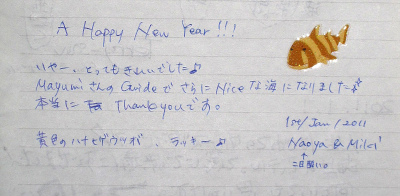 A Happy New Year!!!
いやー、とってもきれいでした♪
Mayumiさんの Guideで さらに Niceな海になりました♪
本当に Thank youです。
黄色のハナヒゲウツボ、ラッキー♪
1st/Jan/2011
Naoya & Miki
↑
二日酔い